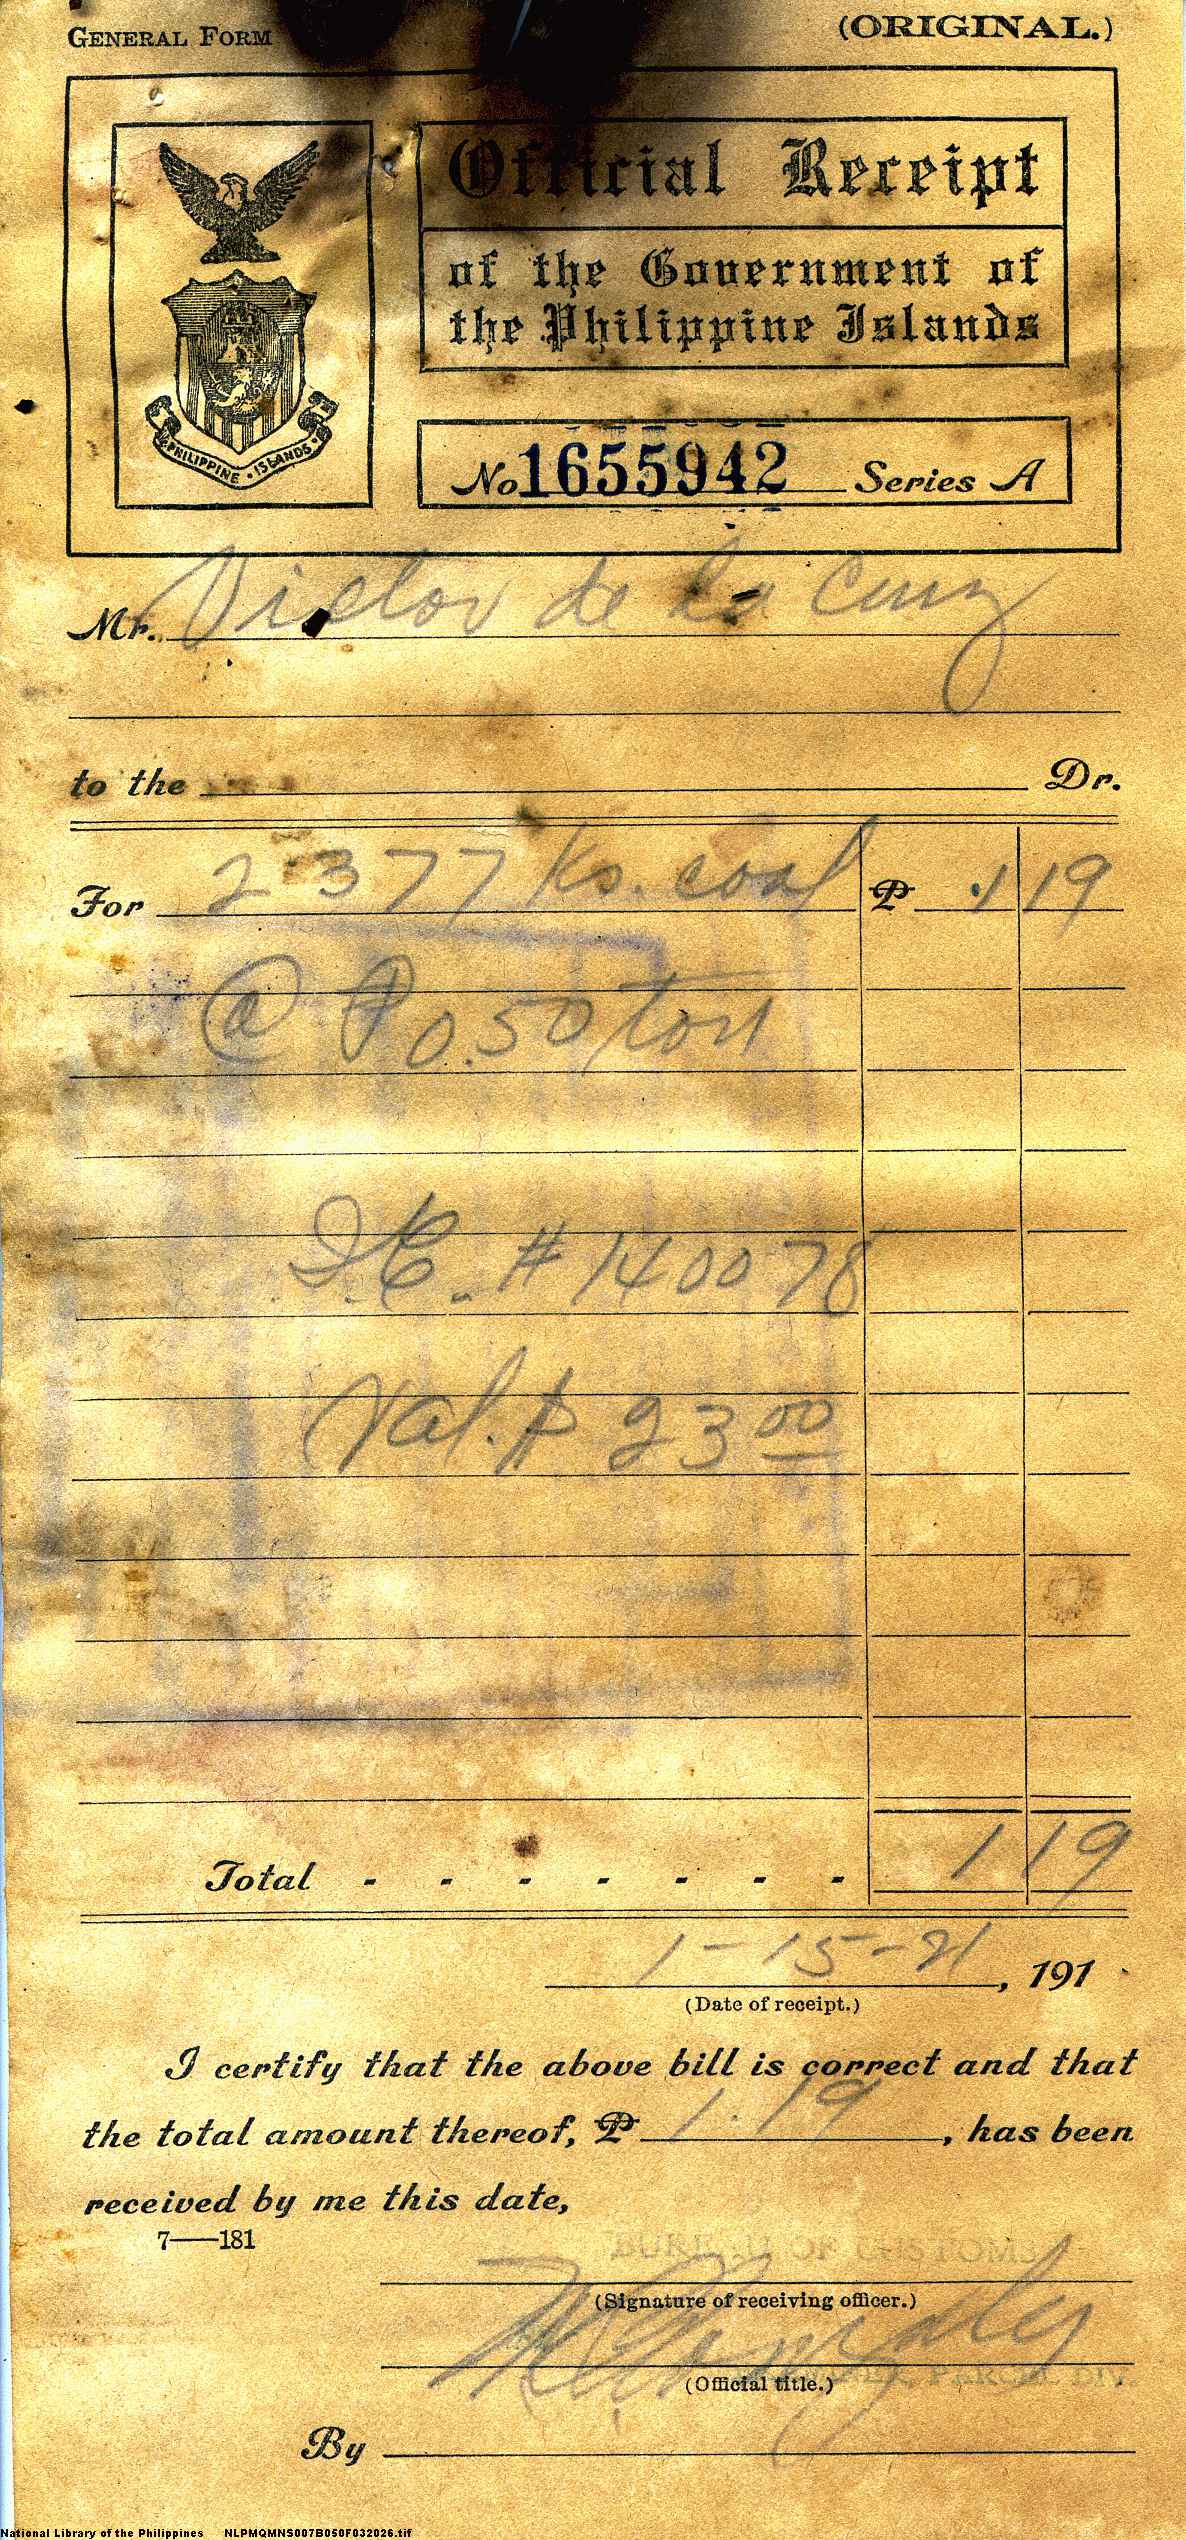 GENERAL FORM
(ORIGINAL.)
Official Receipt
of the Government of
the Philippine Islands
PHILIPPINE ISLANDS
No 1655942 Series A
Mr. Victor de la Cruz
to the Dr.
For 2377 Ks. coal ₱ 1 19
@ ₱0.50 ton
# 140078
Val. ₱ 23 00
Total - - - - - - - 1 19
1-15-21, 191
(Date of receipt.)
I certify that the above bill is correct and that
the total amount thereof, ₱ 1.19, has been
received by me this date,
7—181
BUREAU OF CUSTOMS
(Signature of receiving officer.)
PARCEL DIV
(Official title.)
By
National Library of the Philippines NLPMQMNS007B050F032026.tif